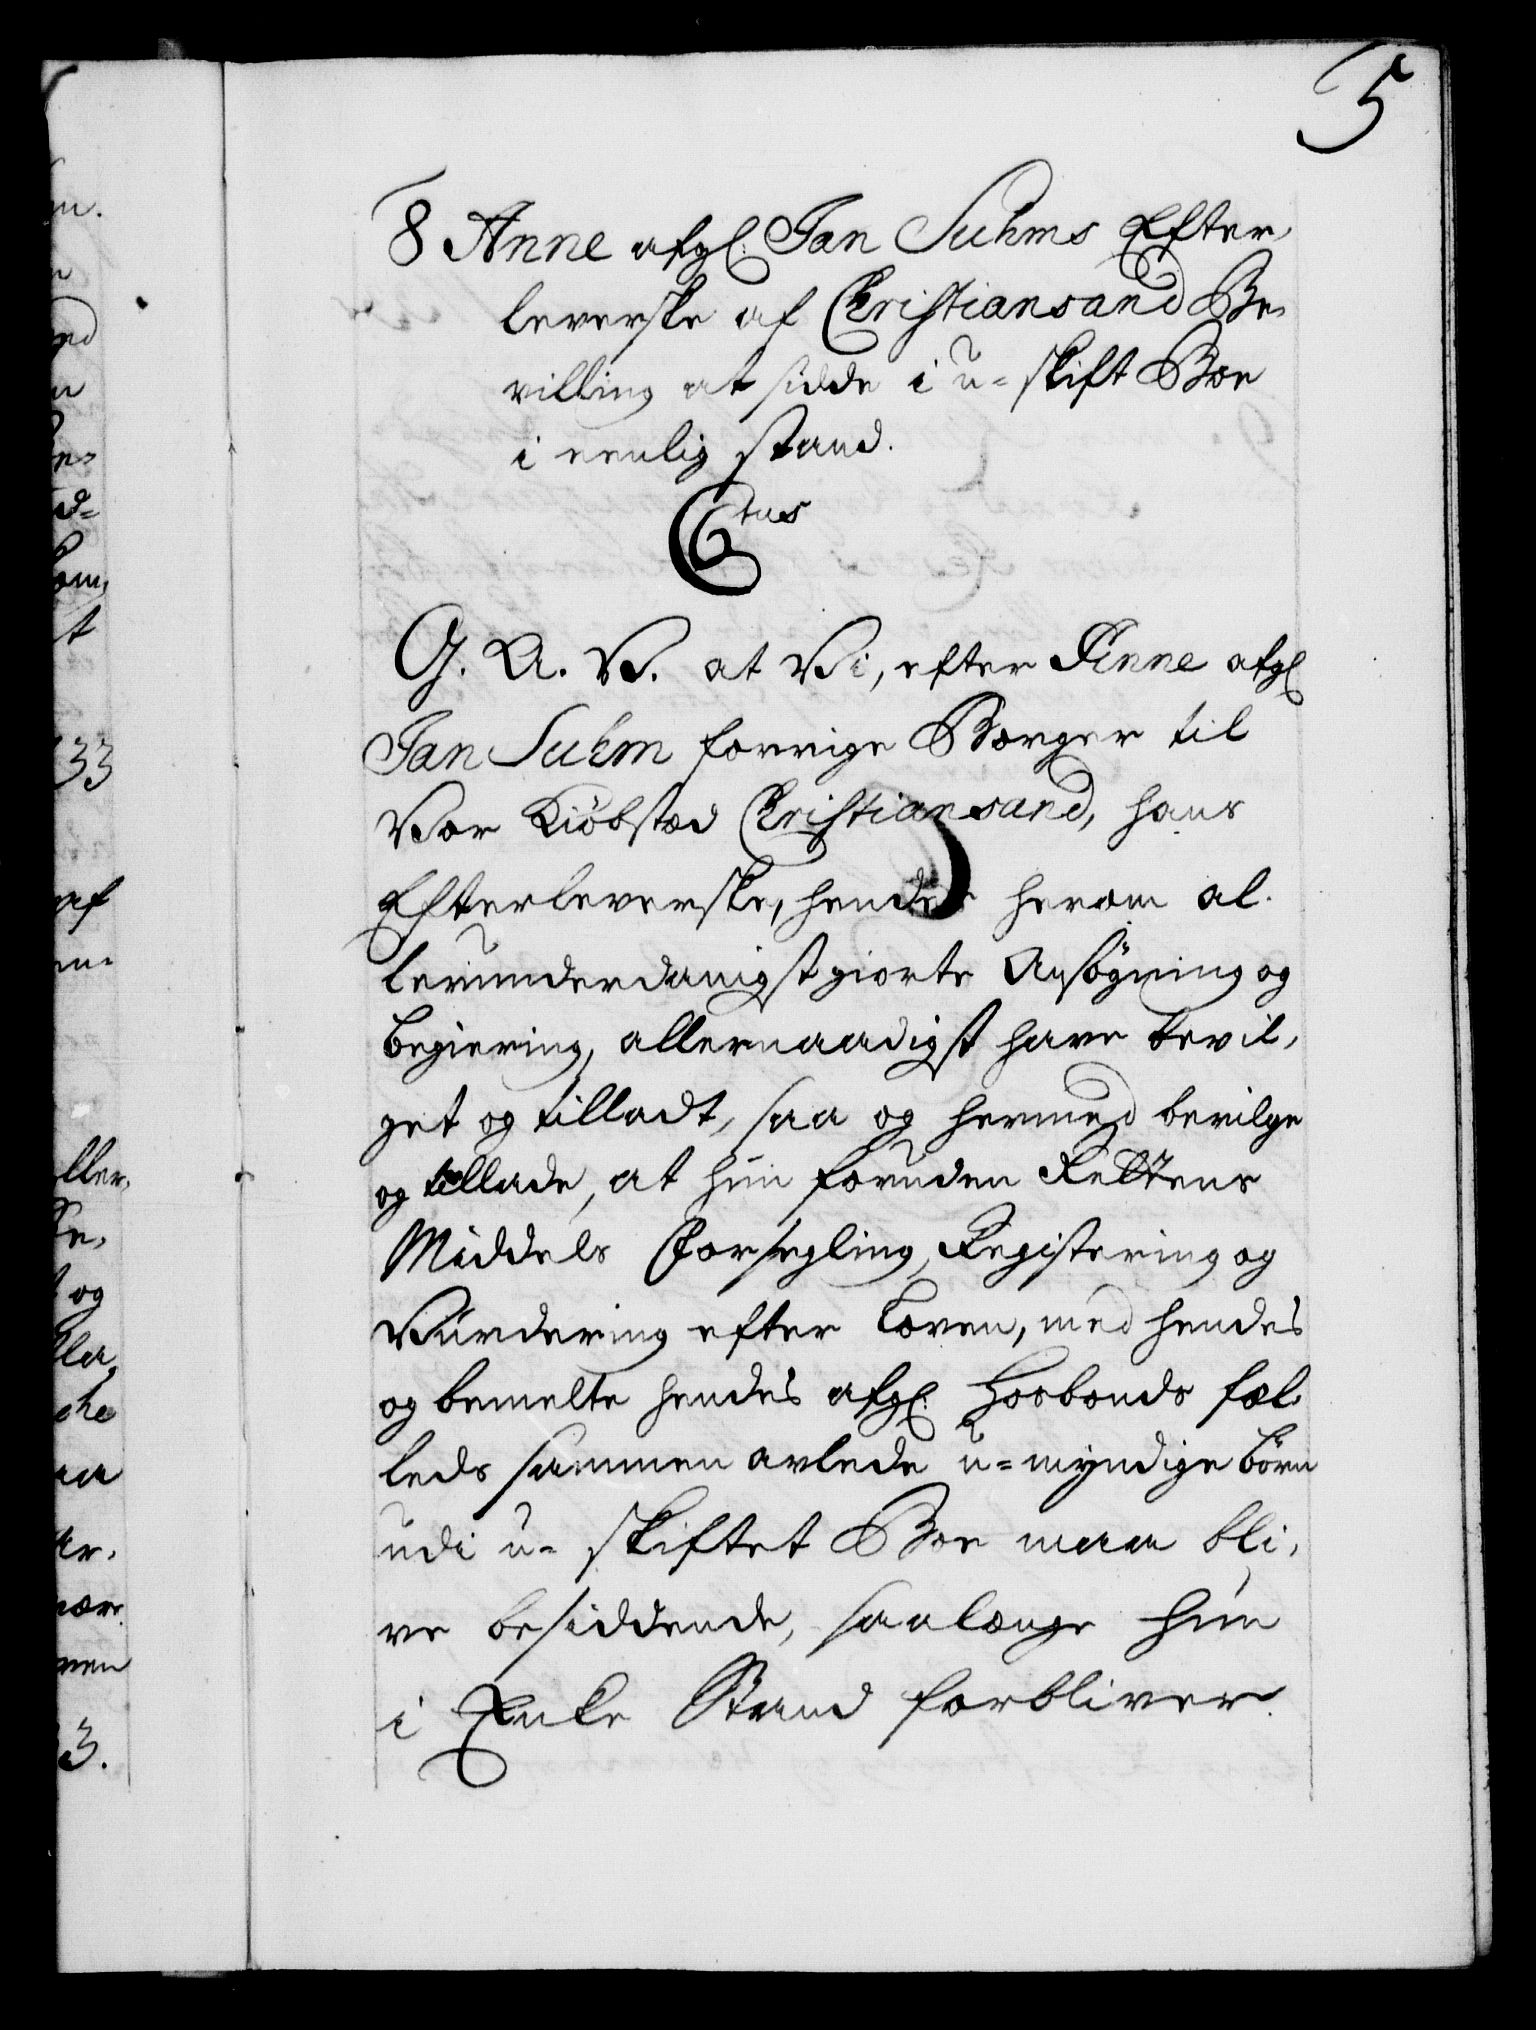 5
8 Anne afgl: Jan Suhms Efter,
leverske af Christiansand Be,
villing at sidde i u-skift Boe
i eenlig stand.
C6tus
G. A. V. at Vi, efter Anne afgl
Jan Suhm forrige Borger til
Vor Kiöbstæd Christiansand, hans
Efterleverske, hendes herom al.
lerunderdanigst giorte Ansögning og
begiering, allernaadigst have bevil,
get og tilladt, saa og hermed bevilge
og tillade, at hun foruden Rettens
Middels Forsegling, Registering og
Vurdering efter Loven, med hendes
og bemelte hendes afgl: Hosbonds fæl,
leds sammen avlede u-myndige börn
udi u-skiftet Boe maa bli,
ve besiddende, saalænge hun
i Enke Stand forbliver.
33
af
og
3.